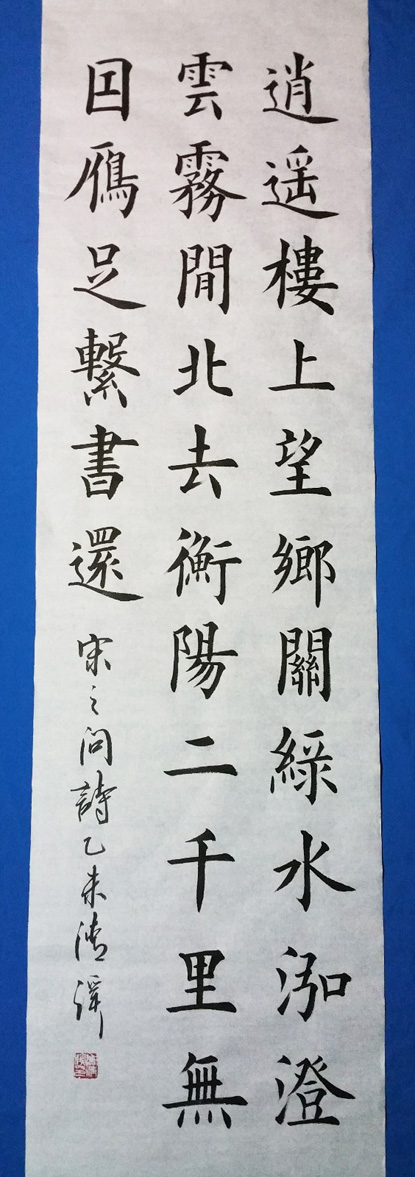 逍遥樓上望鄉關綠水泓澄
雲霧間北去衡陽二千里無
因鴈足繫書還
宋之问詩乙未清